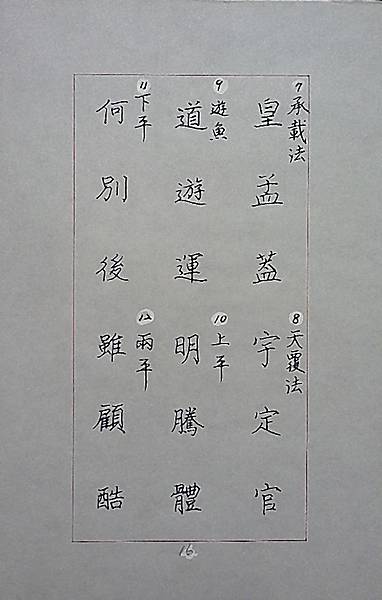 7 承載法
皇孟蓋
8 天覆法
宇定官
9 遊魚
道遊運
10 上平
明騰體
11 下平
何別後
12 兩平
雖顧酷
16